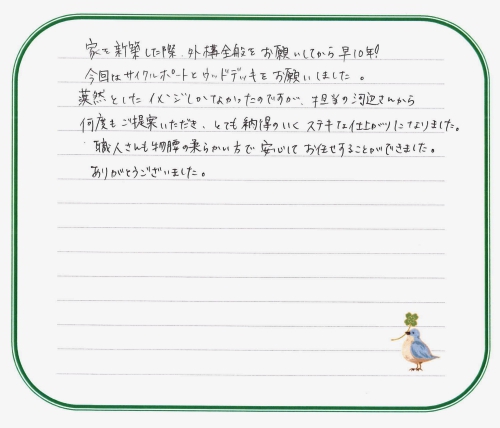 家を新築した際、外構全般をお願いしてから早10年!
今回はサイクルポートとウッドデッキをお願いしました。
漠然としたイメージしかなかったのですが、担当の河辺さんから
何度もご提案いただき、とても納得のいくステキな仕上がりになりました。
職人さんも物腰の柔らかい方で安心してお任せすることができました。
ありがとうございました。